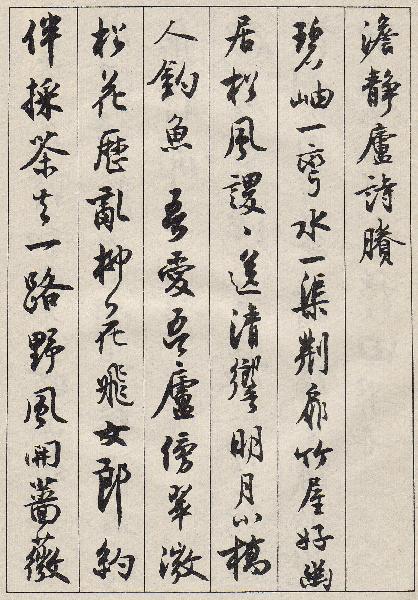 澹静廬詩賸
碧岫一弯水一渠荆扉竹屋好幽
居松風謖々送清響明月小橋
人釣魚 吾愛吾廬傍翠微
松花歷亂柳花飛女郎約
伴採茶去一路野風開薔薇